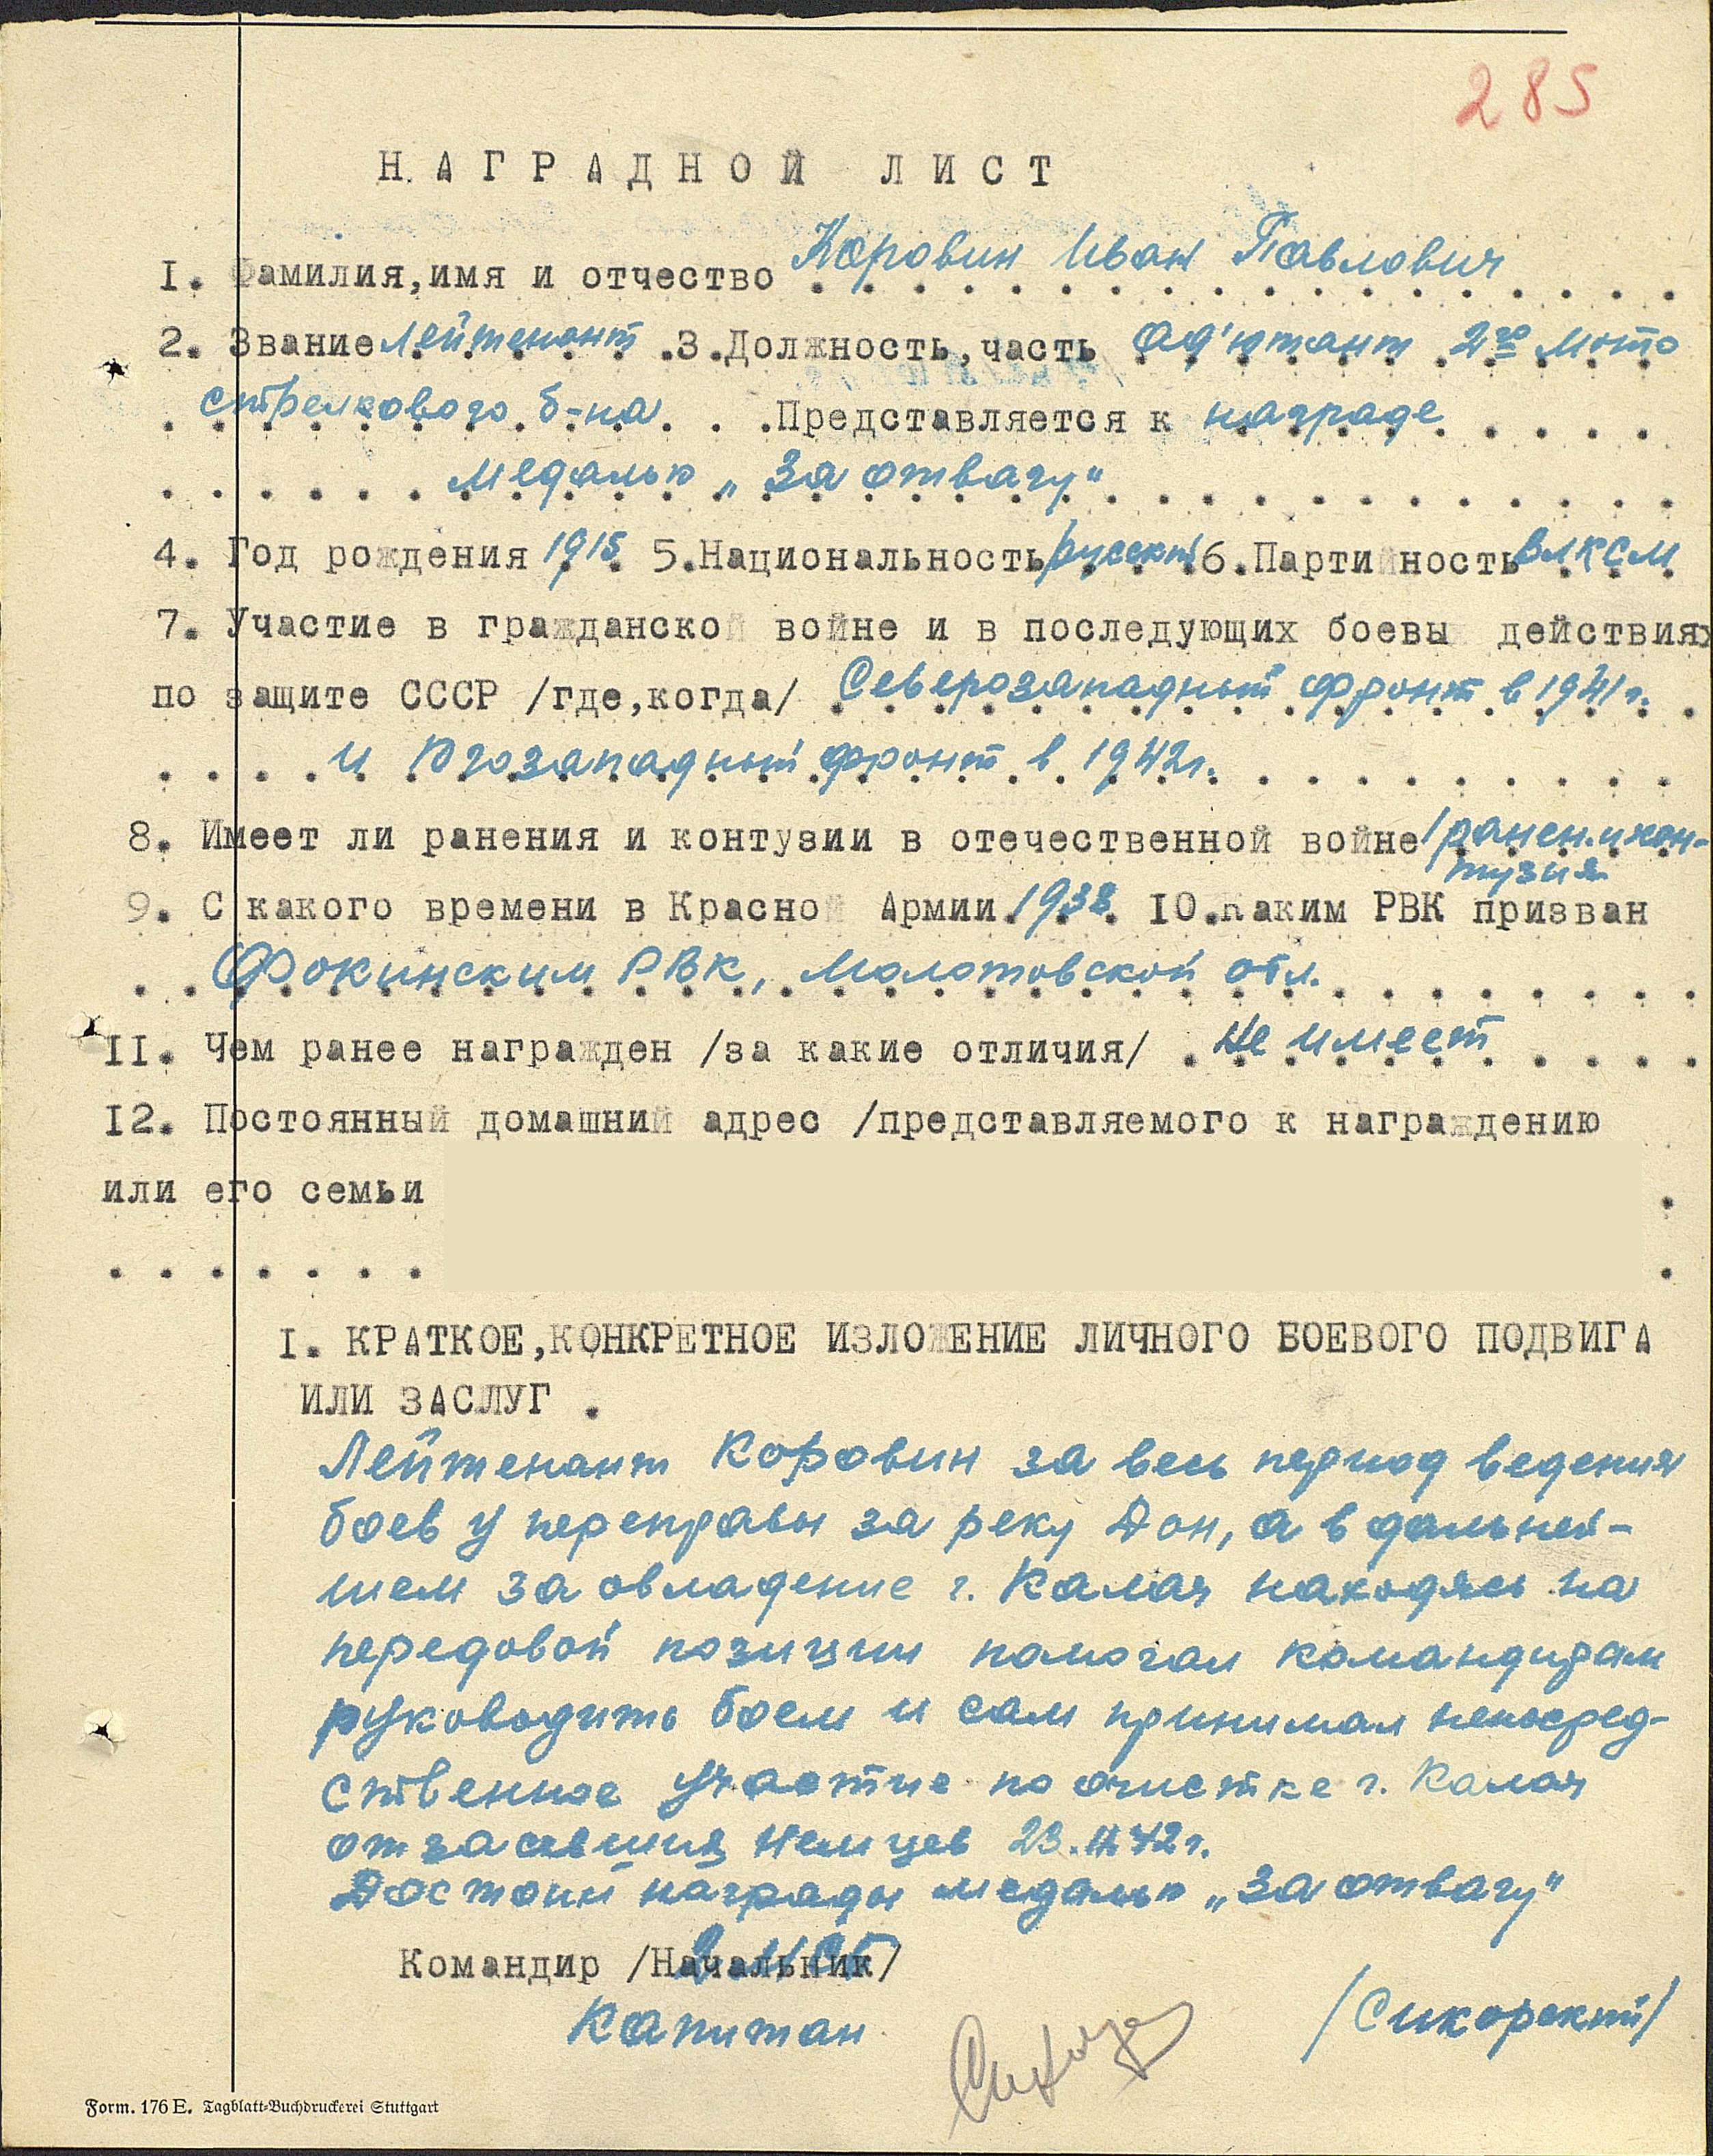 285
НАГРАДНОЙ ЛИСТ
I. Фамилия,имя и отчество Коровин Иван Павлович
2. Звание Лейтенант 3.Должность,часть Ад'ютант 2го мото
стрелкового б-на. Представляется к награде
медалью „За отвагу"
4. Год рождения 1915 5.Национальность русский 6.Партийность ВЛКСМ
7. Участие в гражданской войне и в последующих боевых действиях
по защите СССР /где,когда/ Северозападный фронт в 1941г.
и Югозападный фронт в 1942г.
8. Имеет ли ранения и контузии в отечественной войне 1 ранен. и кон-
тузия
9. С какого времени в Красной Армии 1938 IO.Каким РВК призван
Фокинским РВК, Молотовской обл.
II. Чем ранее награжден /за какие отличия/ Не имеет
I2. Постоянный домашний адрес /представляемого к награждению
или его семьи
I. КРАТКОЕ,КОНКРЕТНОЕ ИЗЛОЖЕНИЕ ЛИЧНОГО БОЕВОГО ПОДВИГА
ИЛИ ЗАСЛУГ .
Лейтенант Коровин за весь период ведения
боев у переправы за реку Дон, а в дальней-
шем за овладение г. Калач находясь на
передовой позиции помогал командирам
руководить боем и сам принимал непосред-
ственное участие по очистке г. Калач
от засевших немцев 23.11.42г.
Достоин награды медалью „За отвагу"
Командир /Начальник/
Капитан /Сикорский/
Form. 176 E. Tagblatt-Buchdruckerei Stuttgart